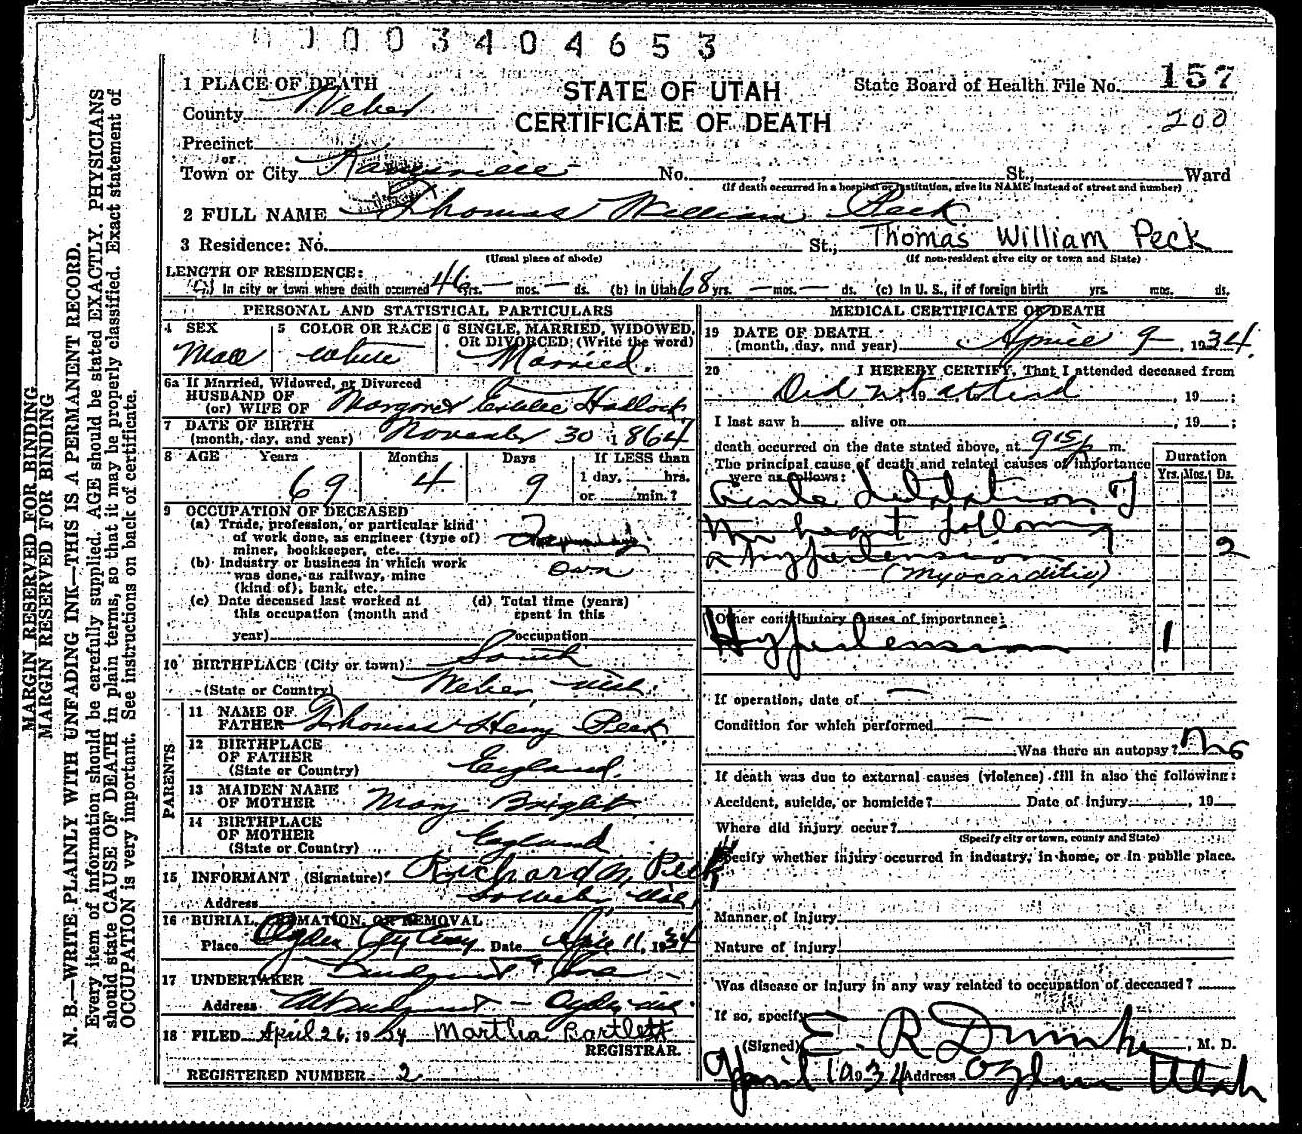 0003404653
1 PLACE OF DEATH
STATE OF UTAH
State Board of Health File No. 157
County Weber
CERTIFICATE OF DEATH
200
Precinct
or
Town or City No. , St., Ward
(If death occurred in a hospital or institution, give its NAME instead of street and number)
2 FULL NAME Thomas William Peck
3 Residence: No. St., Thomas William Peck
(Usual place of abode) (If non-resident give city or town and State)
LENGTH OF RESIDENCE:
(a) In city or town where death occurred 46 yrs. — mos. — ds. (b) In Utah 68 yrs. — mos. — ds. (c) In U. S., if of foreign birth yrs. mos. ds.
PERSONAL AND STATISTICAL PARTICULARS
4 SEX 5 COLOR OR RACE 6 SINGLE, MARRIED, WIDOWED,
OR DIVORCED: (Write the word)
Male white Married.
6a If Married, Widowed, or Divorced
HUSBAND OF
(or) WIFE OF Margaret Hadlock
7 DATE OF BIRTH
(month, day, and year) November 30 1864
8 AGE Years Months Days If LESS than
69 4 9 1 day, hrs.
or min.?
9 OCCUPATION OF DECEASED
(a) Trade, profession, or particular kind
of work done, as engineer (type of)
miner, bookkeeper, etc. Farming
(b) Industry or business in which work
was done, as railway, mine
(kind of), bank, etc. own
(c) Date deceased last worked at (d) Total time (years)
this occupation (month and spent in this
year) occupation
10 BIRTHPLACE (City or town) South
(State or Country) Weber
PARENTS
11 NAME OF
FATHER Thomas Henry Peck
12 BIRTHPLACE
OF FATHER
(State or Country) England.
13 MAIDEN NAME
OF MOTHER Mary Bright
14 BIRTHPLACE
OF MOTHER
(State or Country) England
15 INFORMANT (Signature) Richard Peck
Address So Weber Utah
16 BURIAL, CREMATION, OR REMOVAL
Place Ogden City Cemy Date Apr 11, 1934
17 UNDERTAKER
Address Ogden
18 FILED April 26, 1934 Martha Bartlett
REGISTRAR.
REGISTERED NUMBER 2
MEDICAL CERTIFICATE OF DEATH
19 DATE OF DEATH
(month, day, and year) April 9 — , 1934.
20 I HEREBY CERTIFY, That I attended deceased from
Did not attend , 19 , 19 ;
I last saw h alive on , 19 ;
death occurred on the date stated above, at 9 15 p m.
The principal cause of death and related causes of importance
were as follows:
Duration
Yrs. Mos. Ds.
Acute dilatation of
the heart following
Hypertension 2
(Myocarditis)
Other contributory causes of importance:
Hypertension 1
If operation, date of —
Condition for which performed —
Was there an autopsy? No
If death was due to external causes (violence) fill in also the following:
Accident, suicide, or homicide? Date of injury , 19
Where did injury occur?
(Specify city or town, county and State)
Specify whether injury occurred in industry, in home, or in public place.
Manner of injury
Nature of injury
Was disease or injury in any way related to occupation of deceased?
If so, specify
(Signed) E. R. , M. D.
April 1934 Address Ogden Utah
MARGIN RESERVED FOR BINDING
MARGIN RESERVED FOR BINDING
N. B.—WRITE PLAINLY WITH UNFADING INK—THIS IS A PERMANENT RECORD.
Every item of information should be carefully supplied. AGE should be stated EXACTLY. PHYSICIANS
should state CAUSE OF DEATH in plain terms, so that it may be properly classified. Exact statement of
OCCUPATION is very important. See instructions on back of certificate.